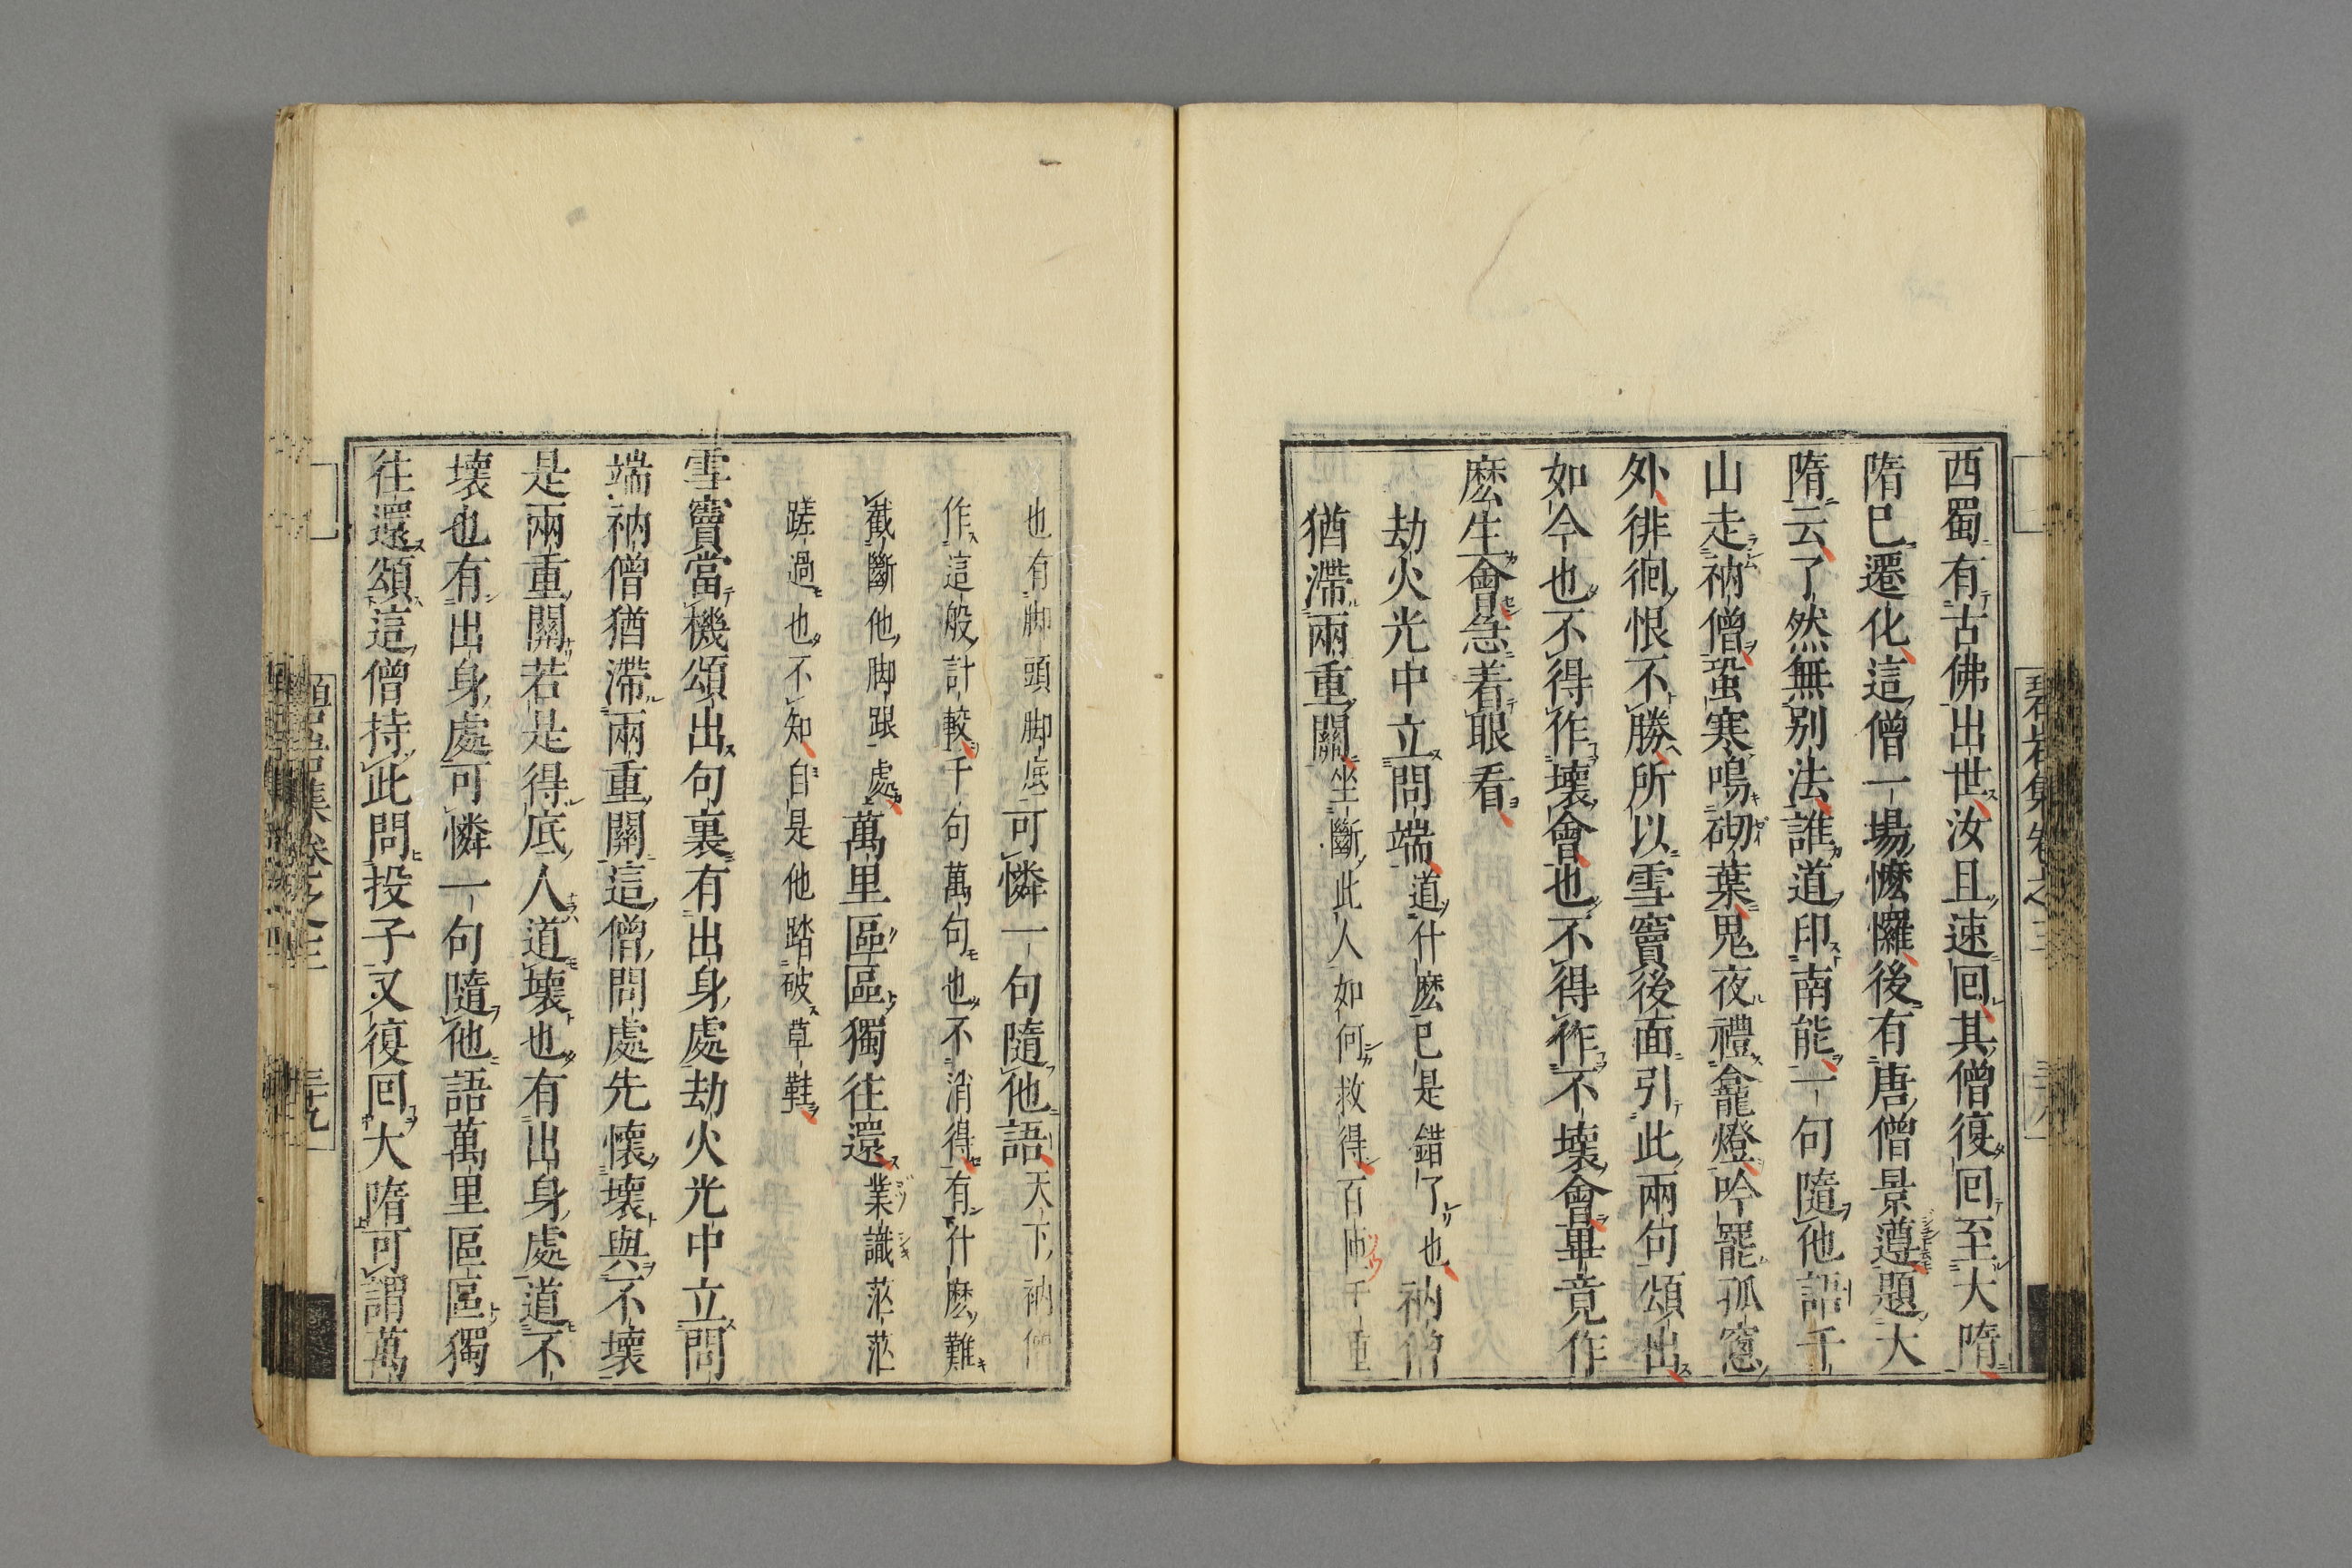 西蜀有古佛出世汝且速回其僧復回至大隋
隋巳遷化這僧一場懡㦬後有唐僧景遵題大
隋云了然無別法誰道印南能一句隨他語千
山走衲僧蛩寒鳴砌葉鬼夜禮龕燈吟罷孤窓
外徘徊恨不勝所以雪竇後面引此兩句頌出
如今也不得作壞會也不得作不壞會畢竟作
麽生會急着眼看
劫火光中立問端道什麽巳是錯了也衲僧
猶滯兩重關坐斷此人如何救得百匝千重
也有脚頭脚底可憐一句隨他語天下衲僧
作這般計較千句萬句也不消得有什麽難
截斷他脚跟處萬里區區獨往還業識茫茫
蹉過也不知自是他踏破草鞋
雪竇當機頌出句裏有出身處劫火光中立問
端衲僧猶滯兩重關這僧問處先懷壞與不壞
是兩重關若是得底人道壞也有出身處道不
壞也有出身處可憐一句隨他語萬里區區獨
往還頌這僧持此問投子又復回大隋可謂萬
集卷之三